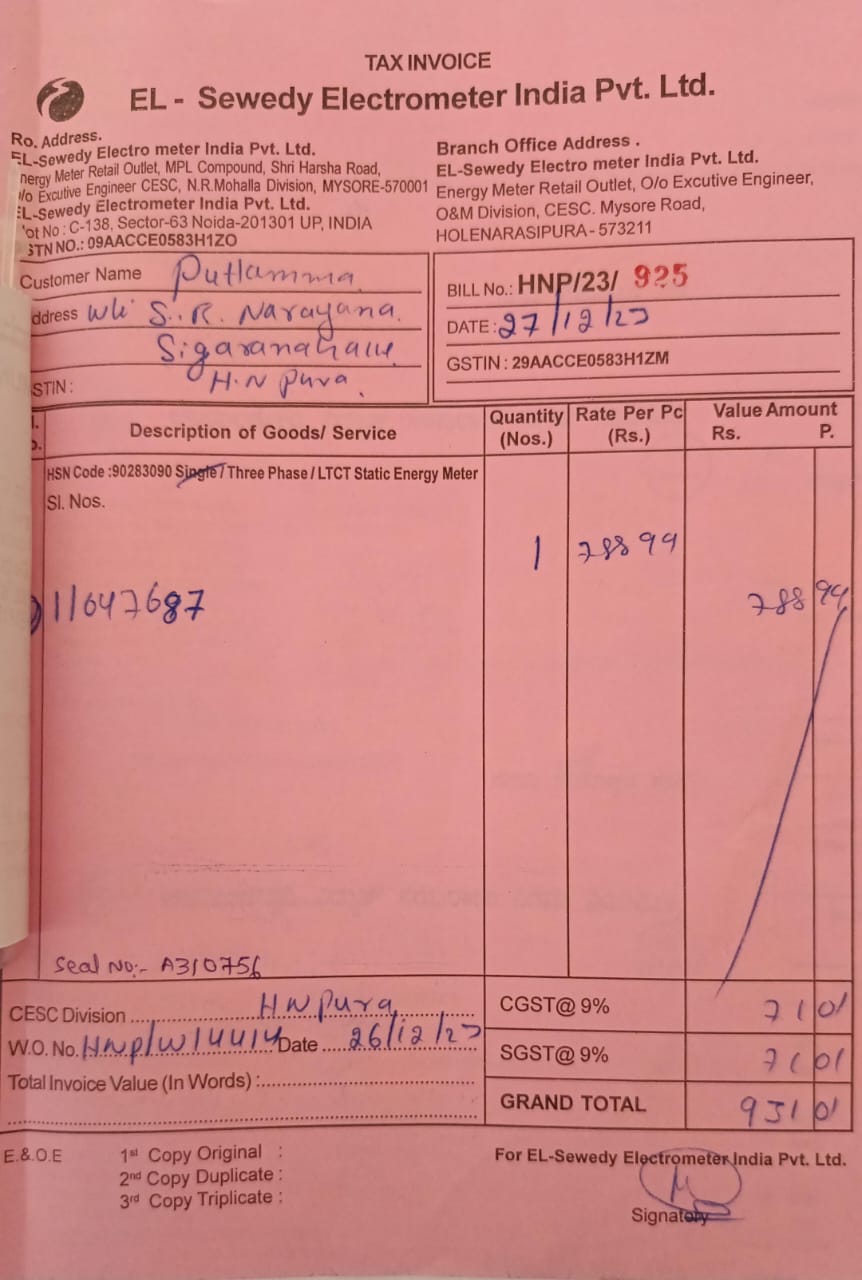 TAX INVOICE
EL - Sewedy Electrometer India Pvt. Ltd.
Ro. Address.
EL-Sewedy Electro meter India Pvt. Ltd.
nergy Meter Retail Outlet, MPL Compound, Shri Harsha Road,
/o Excutive Engineer CESC, N.R.Mohalla Division, MYSORE-570001
EL-Sewedy Electrometer India Pvt. Ltd.
ot No : C-138, Sector-63 Noida-201301 UP, INDIA
STN NO.: 09AACCE0583H1ZO
Branch Office Address .
EL-Sewedy Electro meter India Pvt. Ltd.
Energy Meter Retail Outlet, O/o Excutive Engineer,
O&M Division, CESC. Mysore Road,
HOLENARASIPURA - 573211
Customer Name Puttamma
ddress S.R. Narayana.
Sigaranahalli
STIN : H.N pura.
BILL No.: HNP/23/ 925
DATE : 27/12/23
GSTIN : 29AACCE0583H1ZM
Description of Goods/ Service
Quantity (Nos.)
Rate Per Pc (Rs.)
Value Amount
Rs. P.
HSN Code :90283090 Single / Three Phase / LTCT Static Energy Meter
Sl. Nos.
1 788 99
11647687 788 99
Seal No:- A310756
CESC Division HN pura
W.O. No. HNP/W/4414 Date 26/12/23
Total Invoice Value (In Words) :
CGST@ 9% 71 01
SGST@ 9% 71 01
GRAND TOTAL 931 01
E.&.O.E
1st Copy Original :
2nd Copy Duplicate :
3rd Copy Triplicate :
For EL-Sewedy Electrometer India Pvt. Ltd.
Signatory